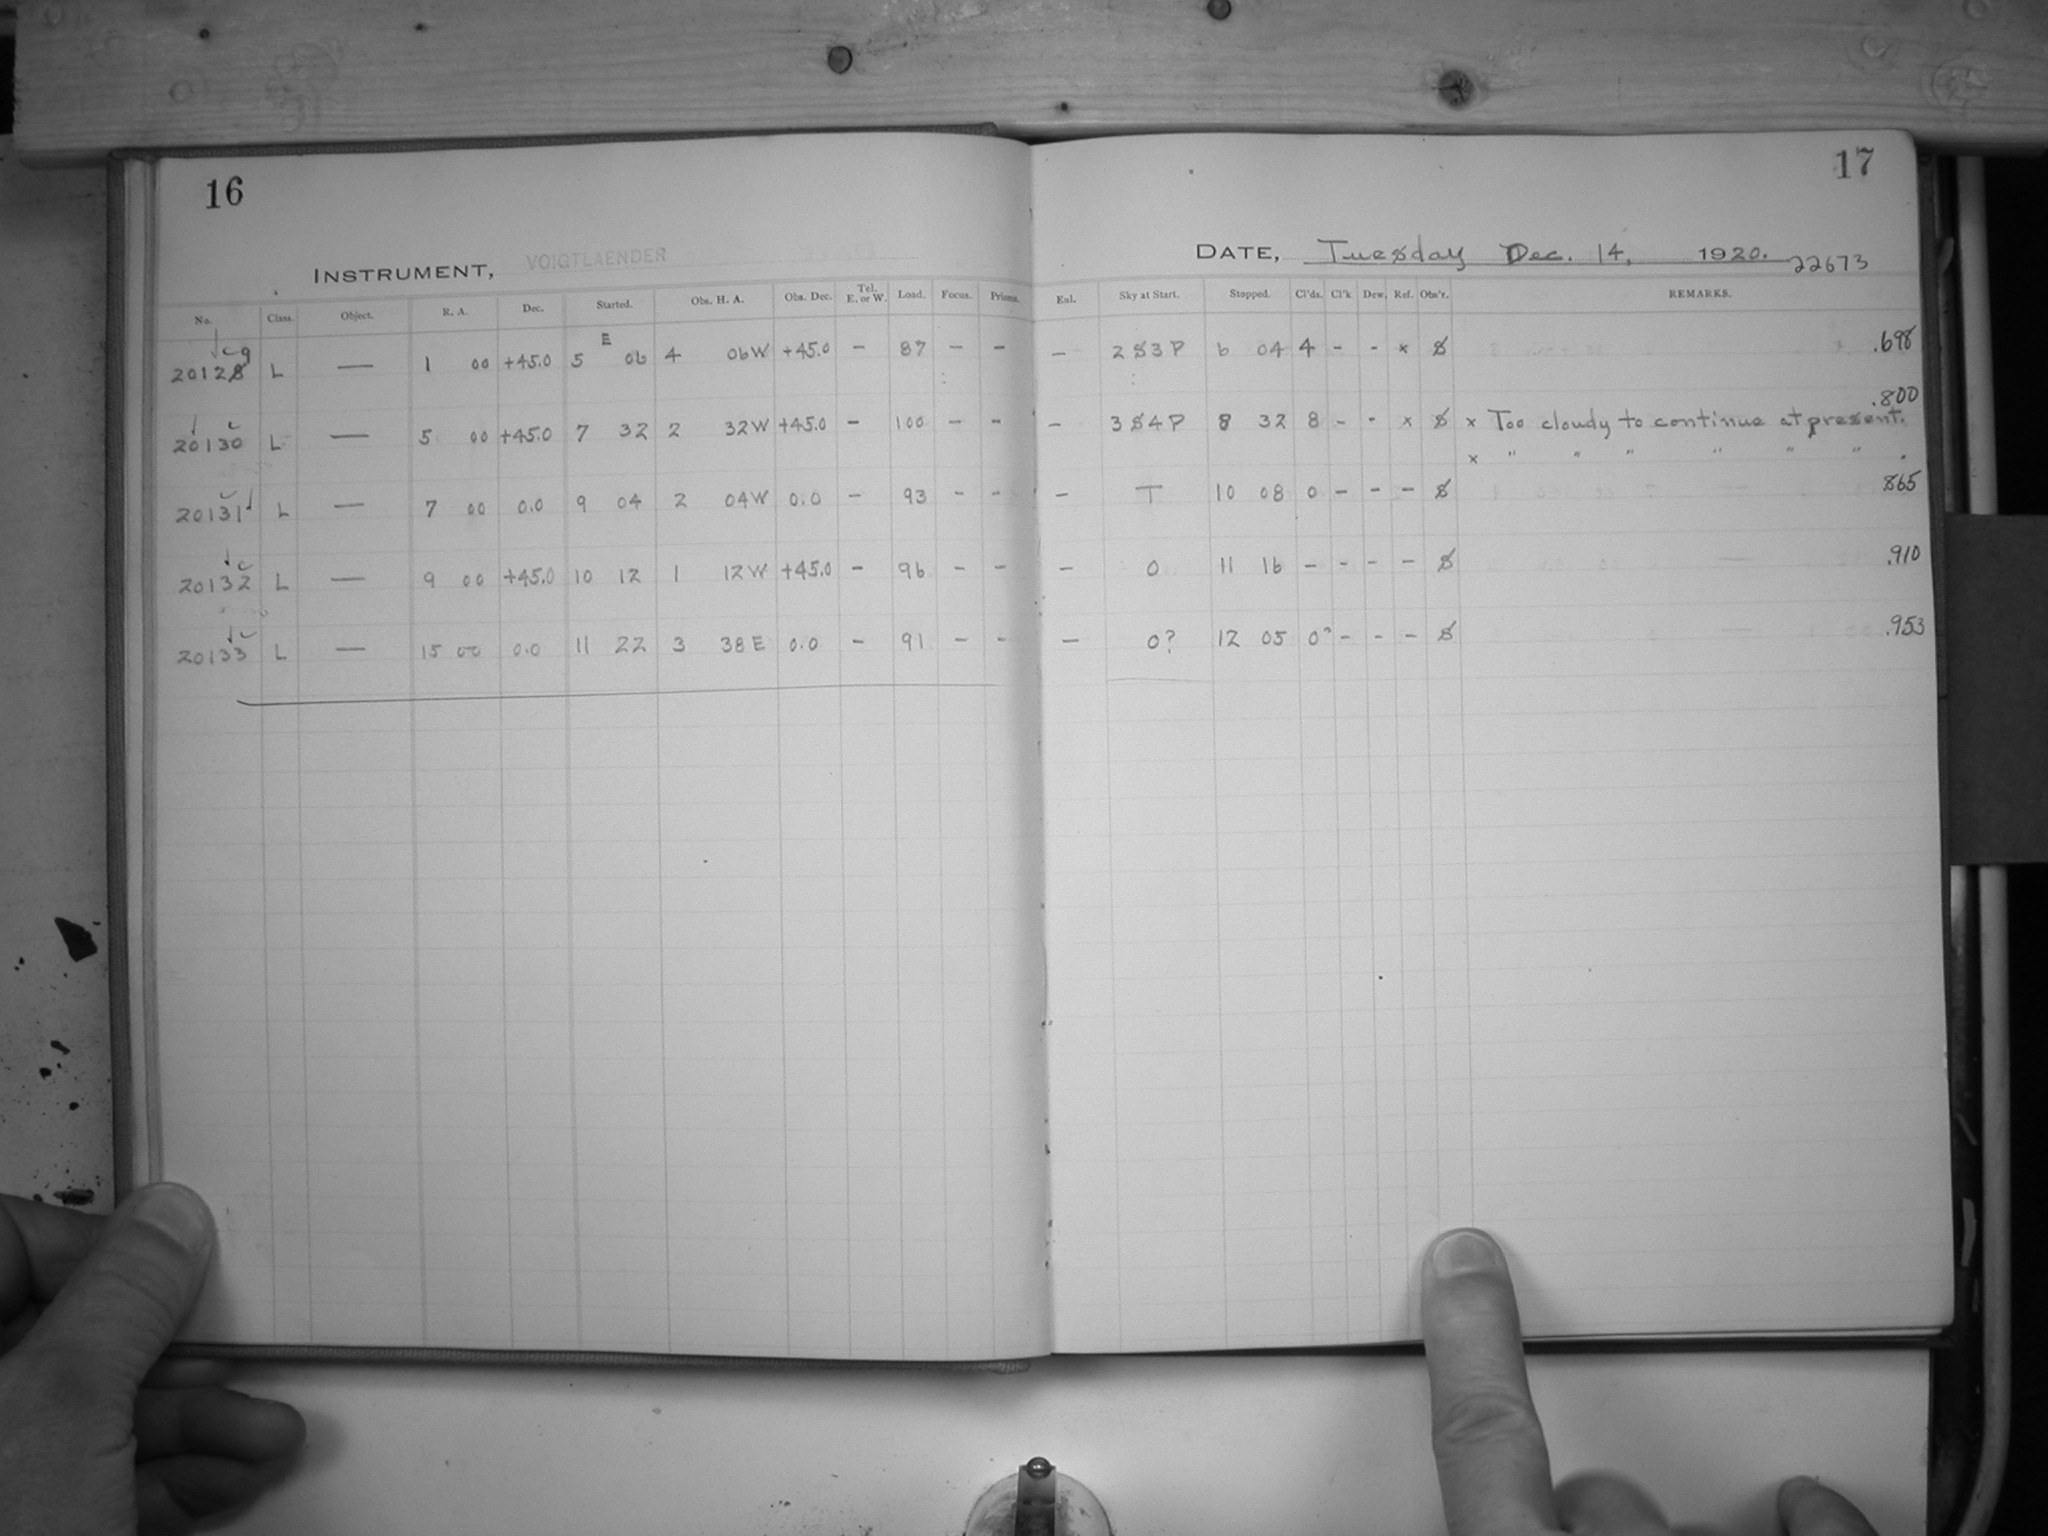 16
INSTRUMENT, VOIGTLAENDER
No. Class. Object. R. A. Dec. Started. Obs. H. A. Obs. Dec. Tel. E. or W. Load. Focus. Prisms.
E
20128 9 L — 1 00 +45.0 5 06 4 06W +45.0 – 87 – –
20130 L — 5 00 +45.0 7 32 2 32W +45.0 – 100 – –
20131 L — 7 00 0.0 9 04 2 04W 0.0 – 93 – –
20132 L — 9 00 +45.0 10 12 1 12W +45.0 – 96 – –
20133 L — 15 00 0.0 11 22 3 38E 0.0 – 91 – –
17
DATE, Tuesday Dec. 14, 1920. 22673
Exl. Sky at Start. Stopped. Cl'ds. Cl'k Dew. Ref. Obs'r. REMARKS.
– 2S3P 6 04 4 – – x S .698
.800
– 3S4P 8 32 8 – – x S x Too cloudy to continue at present.
x " " " " " "
– T 10 08 0 – – – S .865
– 0 11 16 – – – – S .910
– 0? 12 05 0? – – – S .953